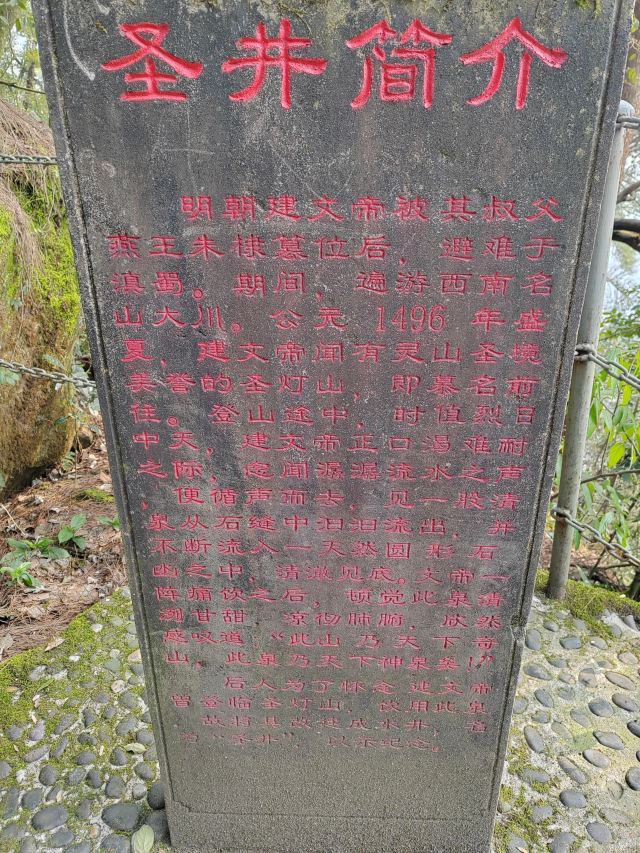 圣井简介
明朝建文帝被其叔父
燕王朱棣篡位后，避难于
滇蜀。期间，遍游西南名
山大川。公元 1496 年盛
夏，建文帝闻有灵山圣境
美誉的圣灯山，即慕名前
往。登山途中，时值烈日
中天，建文帝正口渴难耐
之际，忽闻潺潺流水之声
，便循声而去，见一股清
泉从石缝中汩汩流出，并
不断流入一天然圆形石
凼之中，清澈见底。文帝一
阵痛饮之后，顿觉此泉清
冽甘甜，凉彻肺腑，欣然
感叹道：“此山乃天下奇
山，此泉乃天下神泉矣！”
后人为了怀念建文帝
曾登临圣灯山，饮用此泉
，故将其改建成水井，名
为“圣井”，以示纪念。